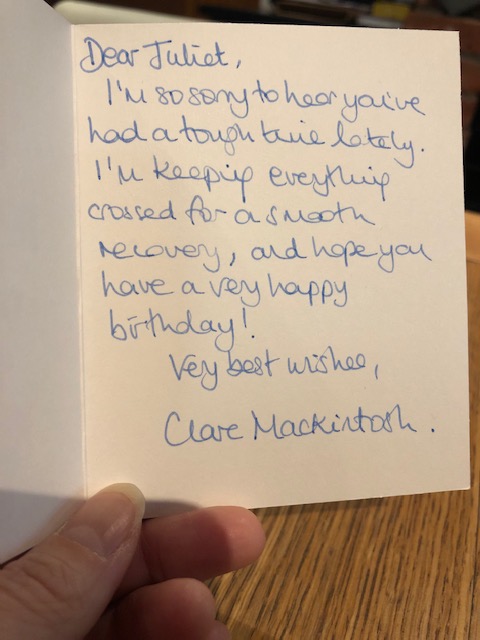 Dear Juliet,
I'm so sorry to hear you've
had a tough time lately.
I'm keeping everything
crossed for a smooth
recovery, and hope you
have a very happy
birthday!
Very best wishes,
Clare Mackintosh.